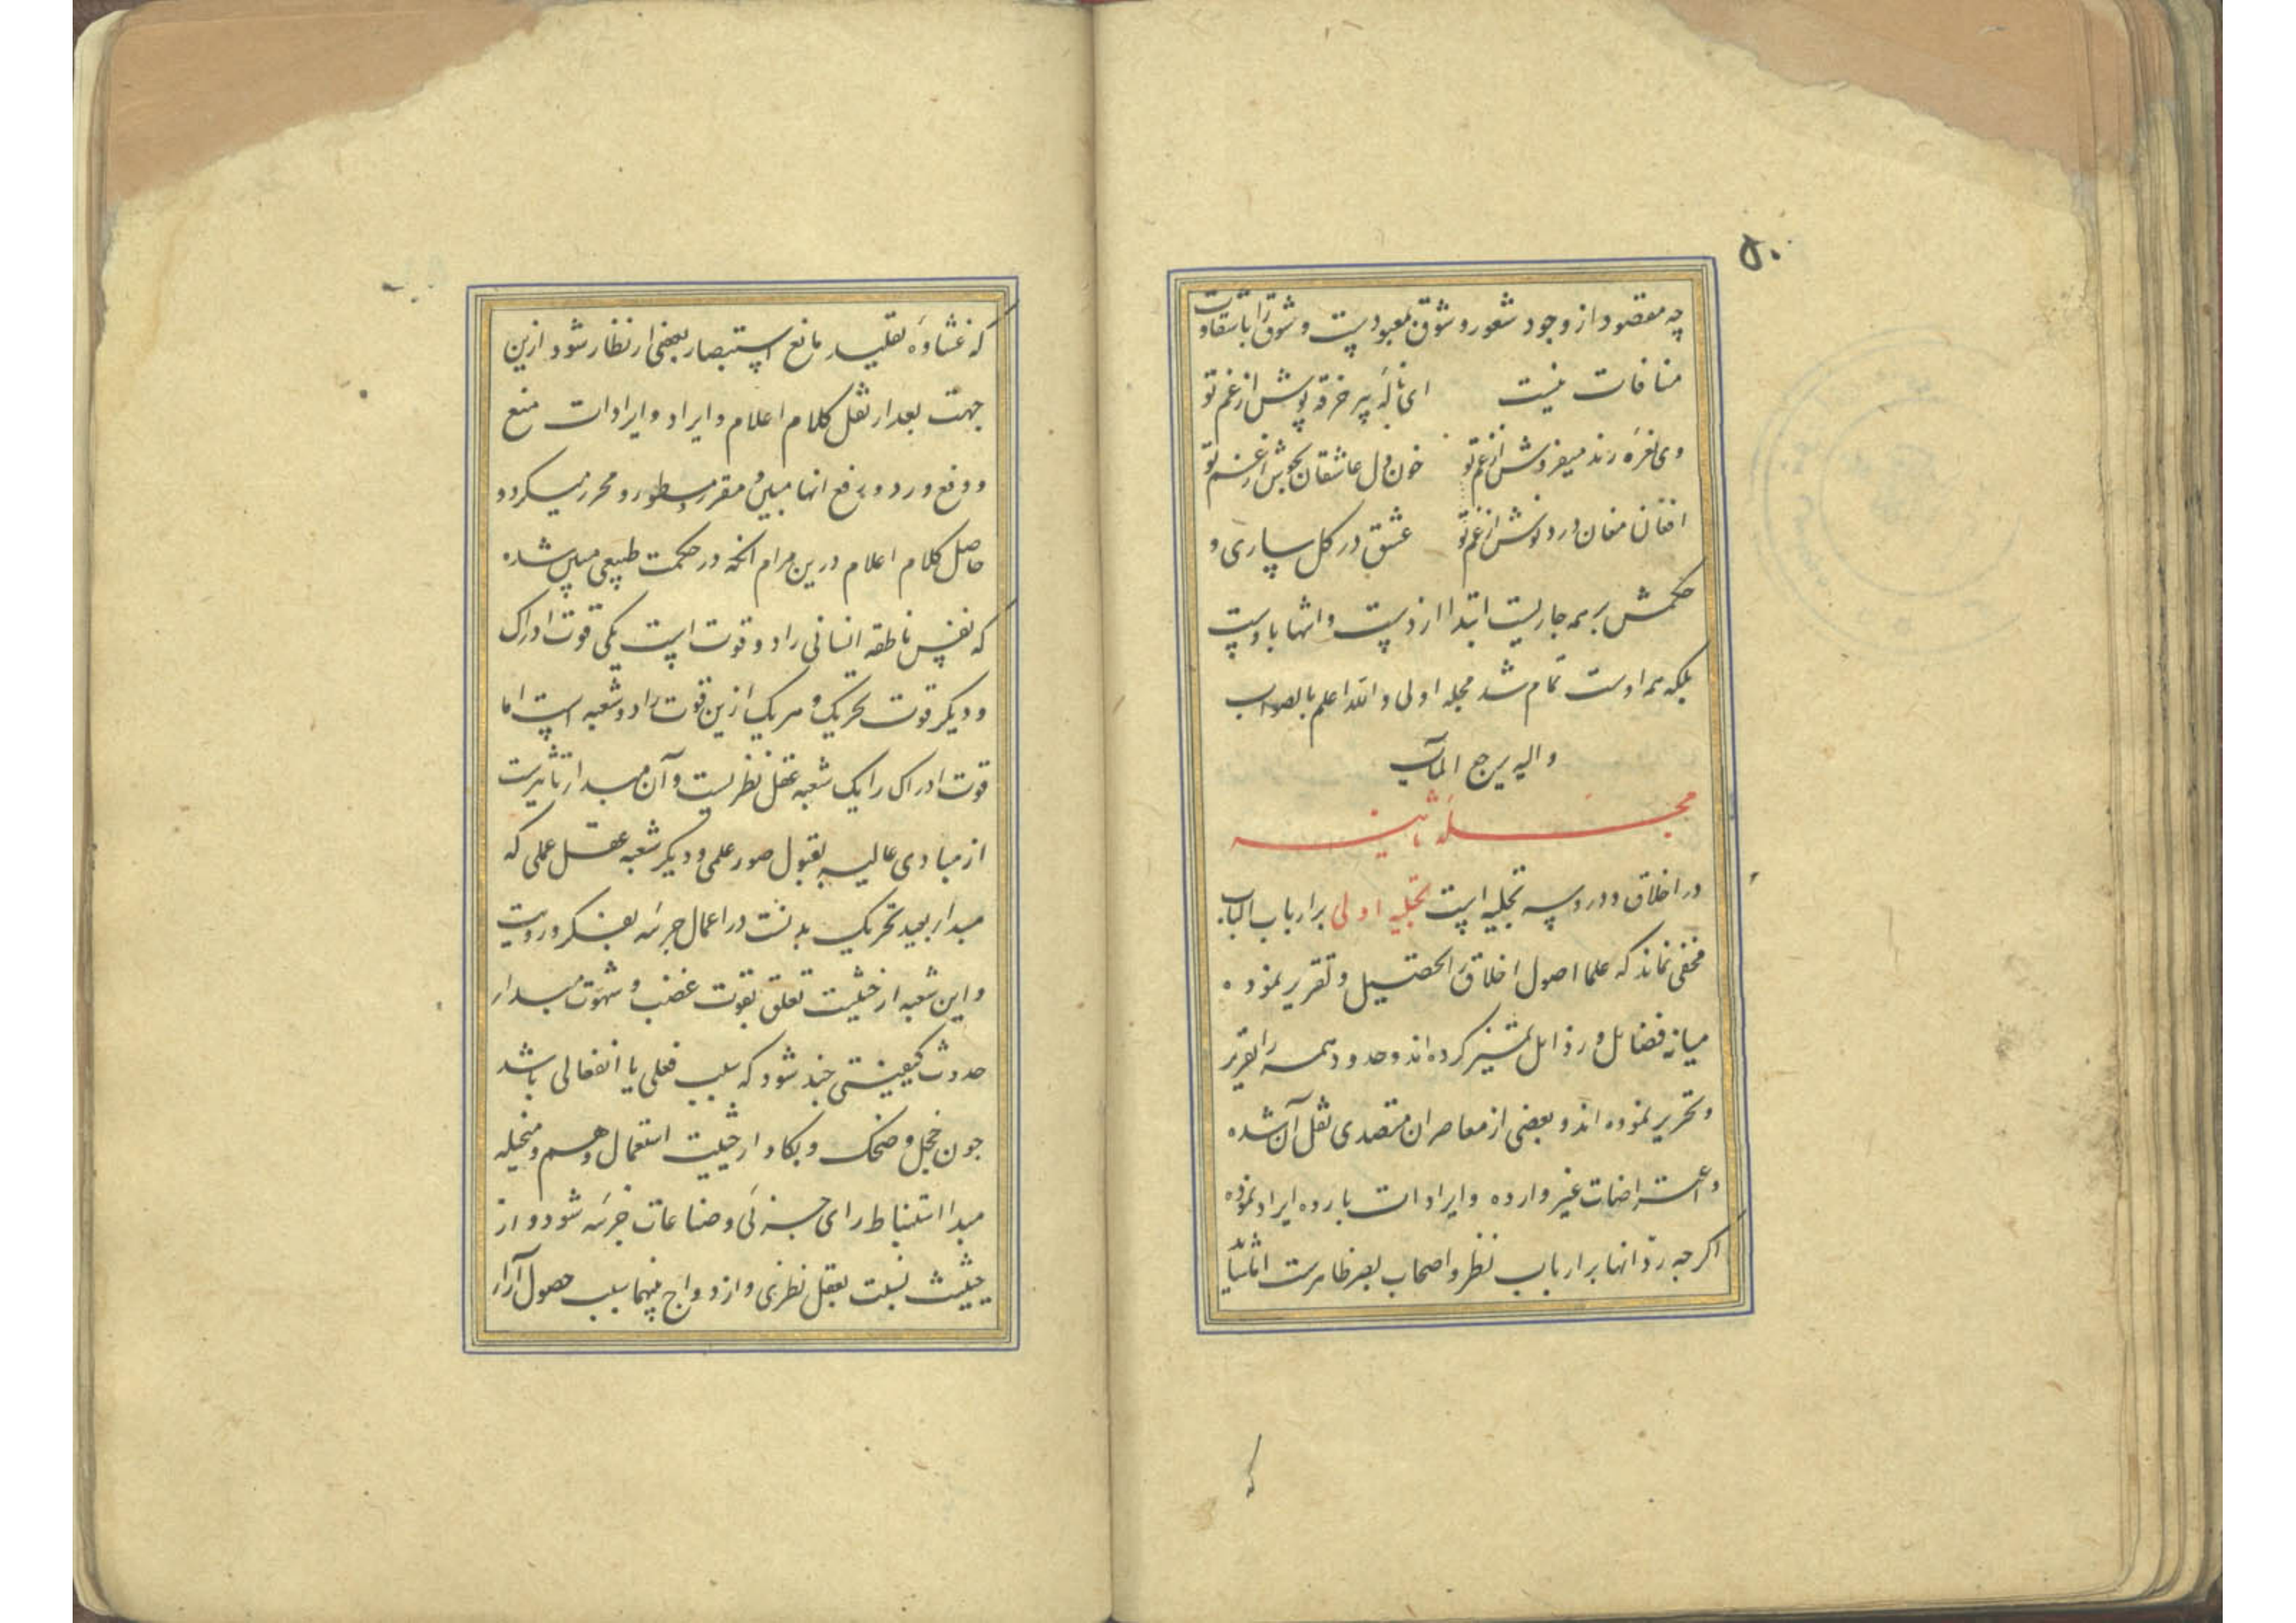 ۵۰
چه مقصود از وجود شعور و شوق بمعبودیست و شوق را با شقاوت
منافات نیست ای نالهٔ پیر خرقه پوش از غم تو
وی نعرهٔ رند میفروش از غم تو خون دل عاشقان بجوش از غم تو
افغان مغان درد نوش از غم تو عشق در کل ساری و
حکمش بر همه جاریست ابتدا ازوست و انتها باوست
بلکه همه اوست تمام شد مجله اولی و الله اعلم بالصواب
و الیه یرجع المآب
مجلهٔ ثانیه
در اخلاق و درو سه تجلیه است تجلیه اولی بر ارباب الباب
مخفی نماند که علما اصول اخلاق را تحصیل و تقریر نموده
میانه فضایل و رذایل تمییز کرده اند و حدود همه را تقریر
و تحریر نموده اند و بعضی از معاصران متصدی نقل آن شده
و اعتراضات غیر وارده و ایرادات بارده ایراد نموده
اکر چه ردّ انها بر ارباب نظر و اصحاب بصر ظاهرست امّا
که
که غشاوهٔ تقلید مانع استبصار بعضی از نظار شود ازین
جهت بعد از نقل کلام اعلام و ایراد و ایرادات منع
و دفع و رد و رفع انها مبین و مقرر و مسطور و محرر میکردد
حاصل کلام اعلام درین مرام انکه در حکمت طبیعی مبین شده
که نفس ناطقه انسانی را دو قوت است یکی قوت ادراک
و دیکر قوت تحریک و هر یک ازین قوت را دو شعبه است اما
قوت ادراک را یک شعبه عقل نظریست و آن مبدا تاثیرست
از مبادی عالیه بقبول صور علمی و دیکر شعبه عقل عملی که
مبدا بعید تحریک بدنست در اعمال جزئه بفکر و رویت
و این شعبه از حیثیت تعلق بقوت غضب و شهوت مبدا
حدوث کیفیتی چند شود که سبب فعلی یا انفعالی باشد
چون خجل و ضحک و بکا و از حیثیت استعمال وهم و متخیله
مبدا استنباط رای جزئی و صناعات جزئه شود و از
حیثیت نسبت بعقل نظری و ازدواج بینهما سبب حصول آراء